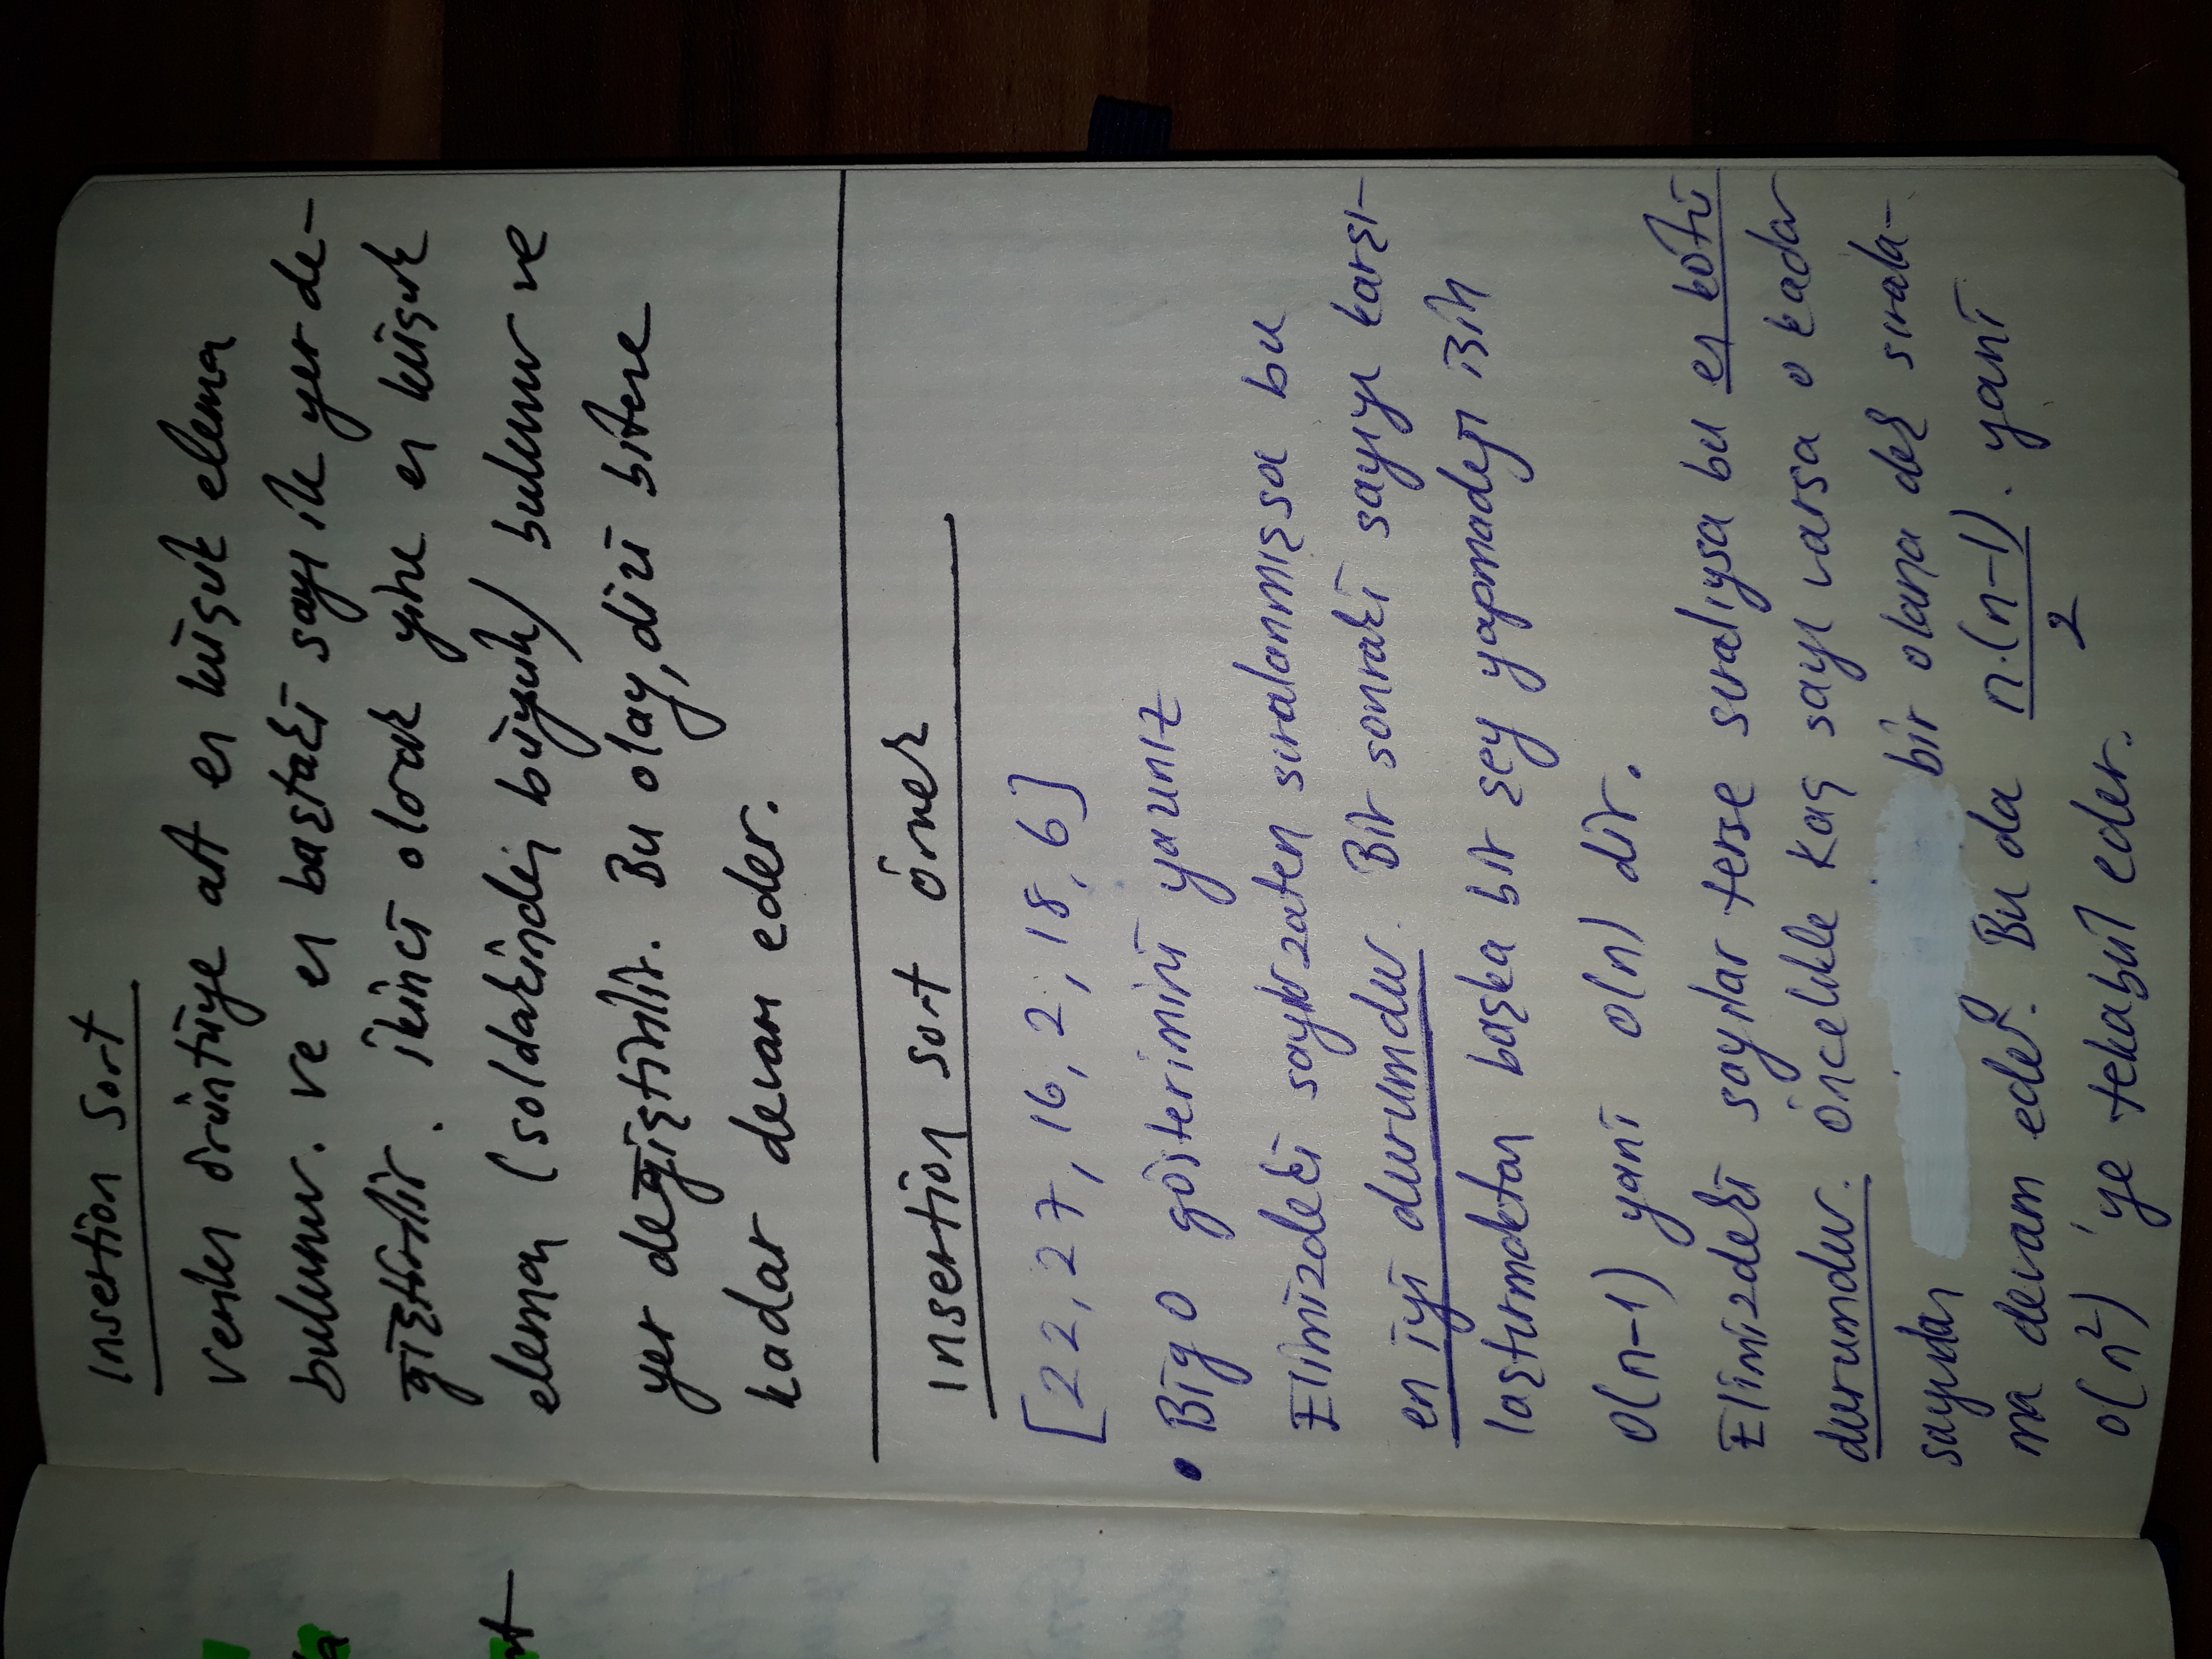 Insertion Sort
Verilen örüntüye ait en küçük eleman
bulunur. ve en baştaki sayı ile yer de-
ğiştirilir. ikinci olarak yine en küçük
eleman (soldakinden büyük) bulunur ve
yer değiştirilir. Bu olay, dizi bitene
kadar devam eder.
Insertion Sort örnek
[22, 27, 16, 2, 18, 6]
• Big O gösterimini yazınız
Elimizdeki sayılar zaten sıralanmışsa bu
en iyi durumdur. Bir sonraki sayıyı karşı-
laştırmaktan başka bir şey yapmadığı için
O(n-1) yani O(n) dir.
Elimizdeki sayılar terse sıralıysa bu en kötü
durumdur. Öncelikle kaç sayı varsa o kadar
sayıdan bir olana dek sırala-
ma devam eder. Bu da n.(n-1)/2 . yani
O(n²) 'ye tekabül eder.